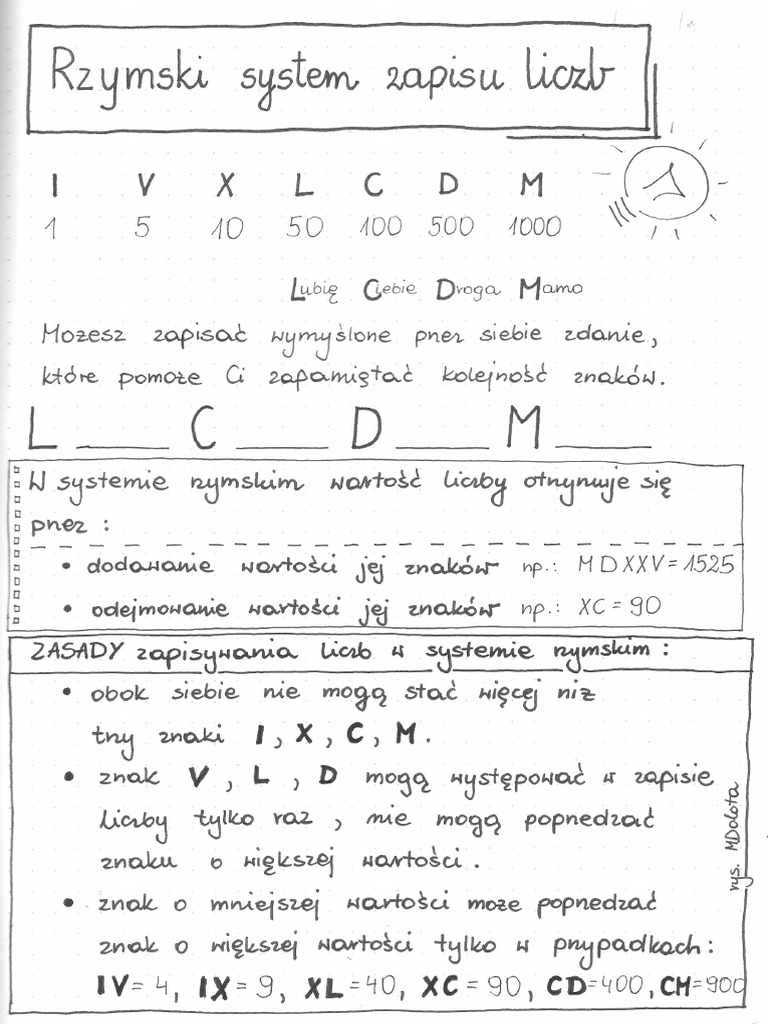 Rzymski system zapisu liczb
I V X L C D M
1 5 10 50 100 500 1000
Lubię Ciebie Droga Mamo
Możesz zapisać wymyślone przez siebie zdanie,
które pomoże Ci zapamiętać kolejność znaków.
L ____ C ____ D ____ M ____
W systemie rzymskim wartość liczby otrzymuje się
przez :
• dodawanie wartości jej znaków np.: MDXXV=1525
• odejmowanie wartości jej znaków np.: XC=90
ZASADY zapisywania liczb w systemie rzymskim :
• obok siebie nie mogą stać więcej niż
trzy znaki I, X, C, M.
• znak V, L, D mogą występować w zapisie
liczby tylko raz, nie mogą poprzedzać
znaku o większej wartości.
• znak o mniejszej wartości może poprzedzać
znak o większej wartości tylko w przypadkach:
IV=4, IX=9, XL=40, XC=90, CD=400, CM=900
rys. MDolota